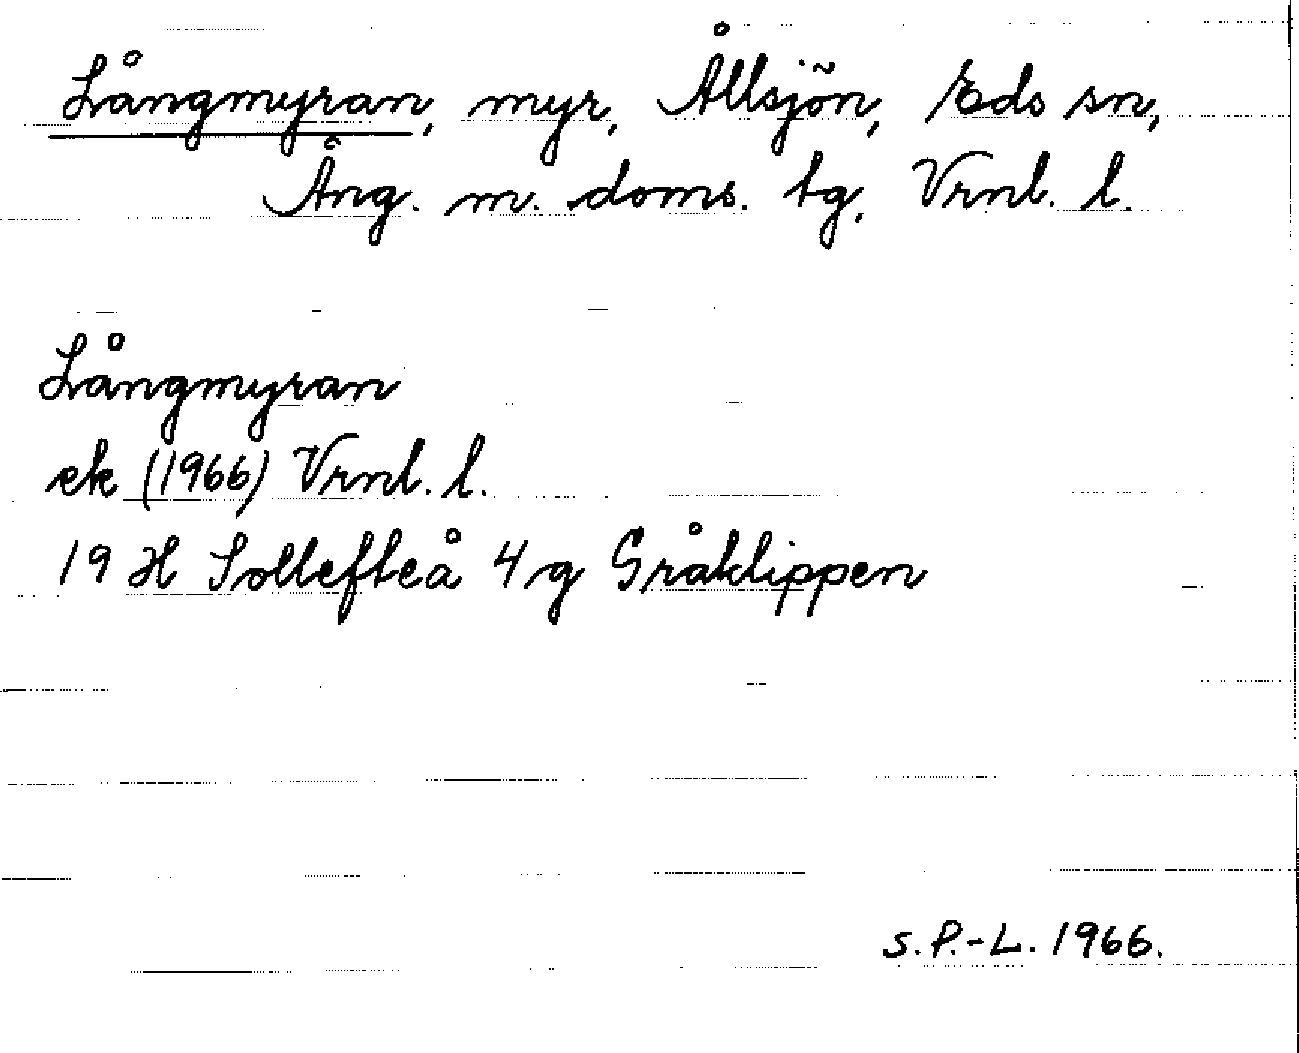 Långmyran, myr, Ållsjön, Eds sn,
Ång. m. doms. tg, Vrnl. l.
Långmyran
ek (1966) Vrnl. l.
19 H Sollefteå 4 g Gråklippen
S.P.-L. 1966.